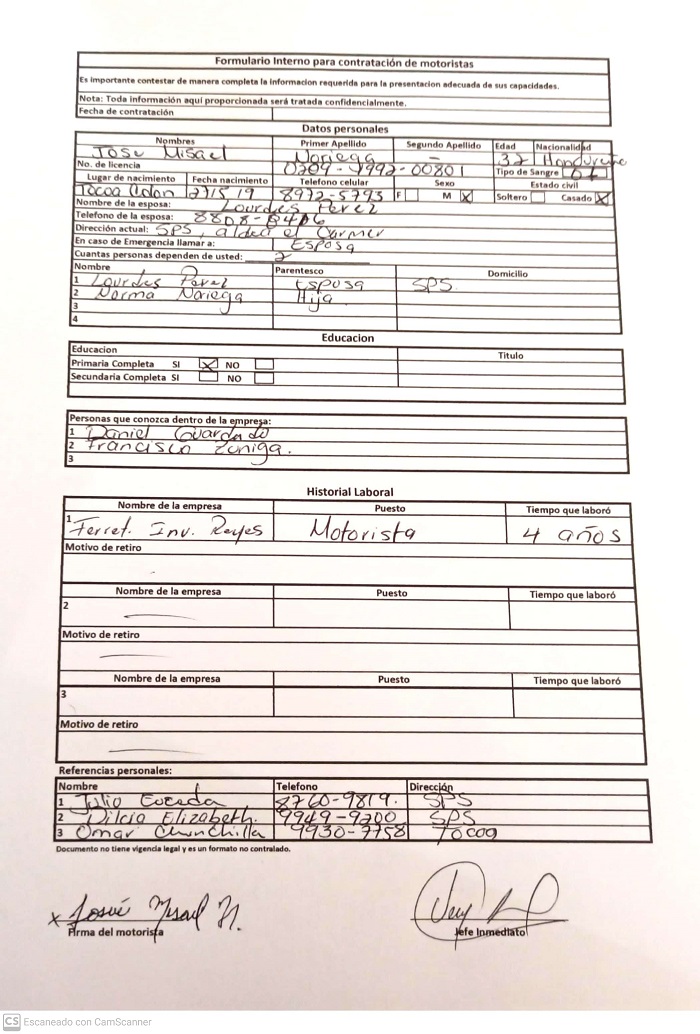 Formulario Interno para contratación de motoristas
Es importante contestar de manera completa la informacion requerida para la presentacion adecuada de sus capacidades.
Nota: Toda información aquí proporcionada será tratada confidencialmente.
Fecha de contratación
Datos personales
Nombres Primer Apellido Segundo Apellido Edad Nacionalidad
Josue Misael Noriega — 32 Hondureñe
No. de licencia 0209-1992-00801 Tipo de Sangre O+
Lugar de nacimiento Fecha nacimiento Telefono celular Sexo Estado civil
Tocoa Colon 8972-5793 F M X Soltero Casado X
Nombre de la esposa: Lourdes Perez
Telefono de la esposa: 8808-8406
Dirección actual: SPS, aldea el Carmen
En caso de Emergencia llamar a: Esposa
Cuantas personas dependen de usted: 2
Nombre Parentesco Domicilio
1 Lourdes Perez Esposa SPS
2 Norma Noriega Hija
3
4
Educacion
Educacion Titulo
Primaria Completa SI X NO
Secundaria Completa SI NO
Personas que conozca dentro de la empresa:
1 Daniel Guardado
2 Francisco Zuniga.
3
Historial Laboral
Nombre de la empresa Puesto Tiempo que laboró
1 Ferret. Inv. Reyes Motorista 4 años
Motivo de retiro
Nombre de la empresa Puesto Tiempo que laboró
2
Motivo de retiro
Nombre de la empresa Puesto Tiempo que laboró
3
Motivo de retiro
Referencias personales:
Nombre Telefono Dirección
1 Julio Euceda 8760-9819. SPS
2 Dilcia Elizabeth. 9949-9200 SPS
3 Omar Chinchilla 9930-7758 Tocoa
Documento no tiene vigencia legal y es un formato no contralado.
x Josué Misael N.
Firma del motorista Jefe Inmediato
CS Escaneado con CamScanner